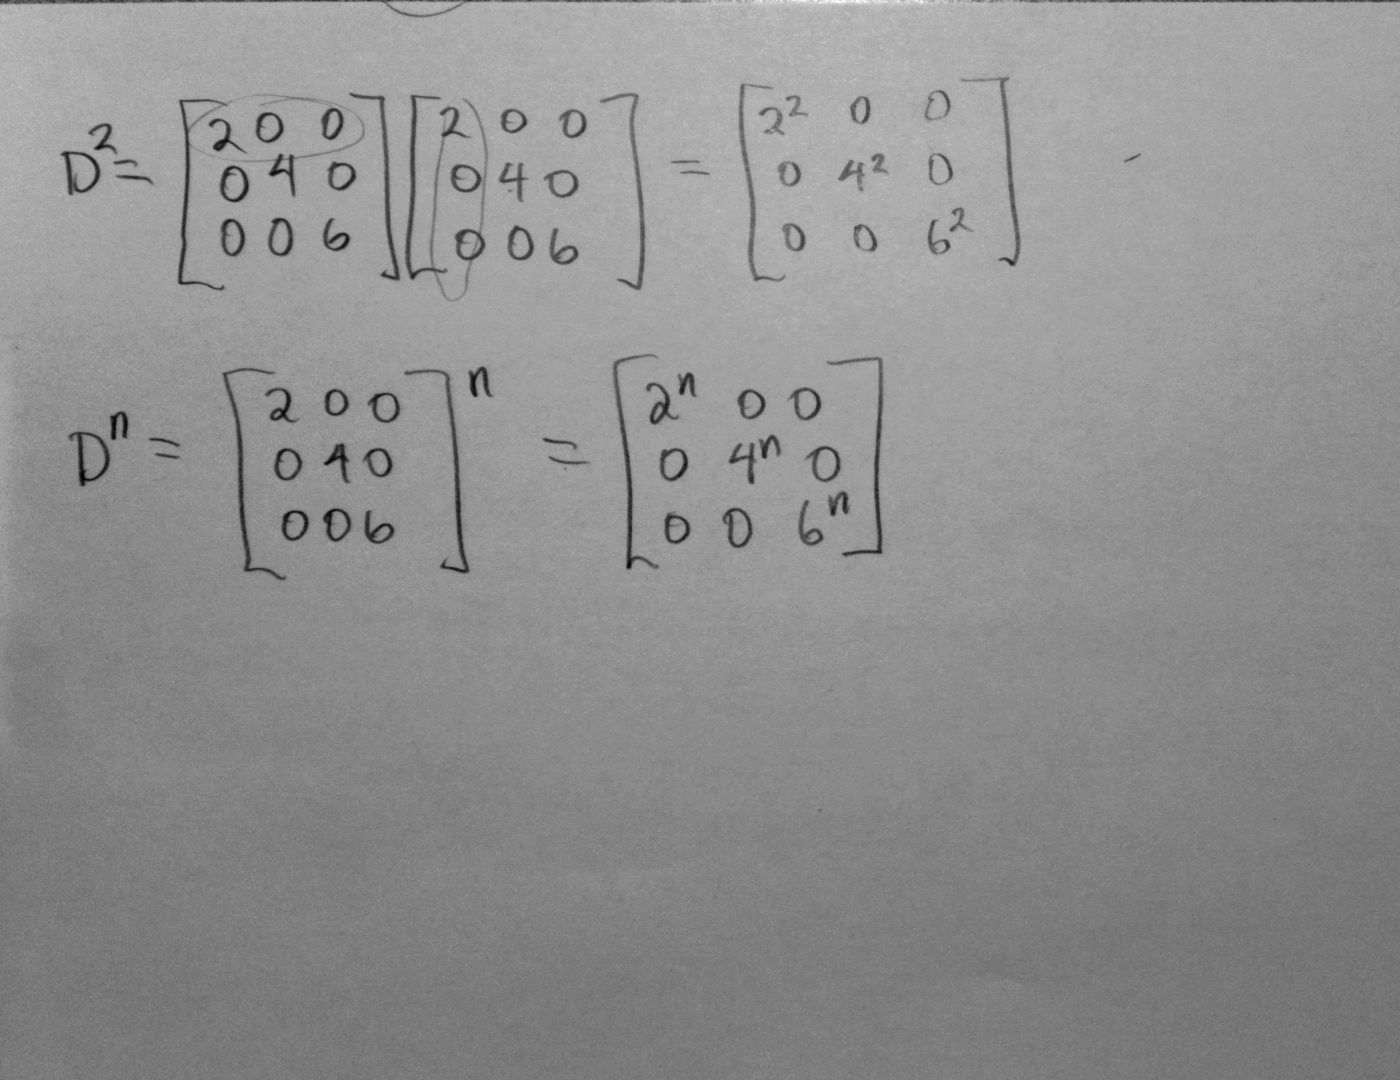 D² = [2 0 0; 0 4 0; 0 0 6] [2 0 0; 0 4 0; 0 0 6] = [2² 0 0; 0 4² 0; 0 0 6²]
Dⁿ = [2 0 0; 0 4 0; 0 0 6]ⁿ = [2ⁿ 0 0; 0 4ⁿ 0; 0 0 6ⁿ]